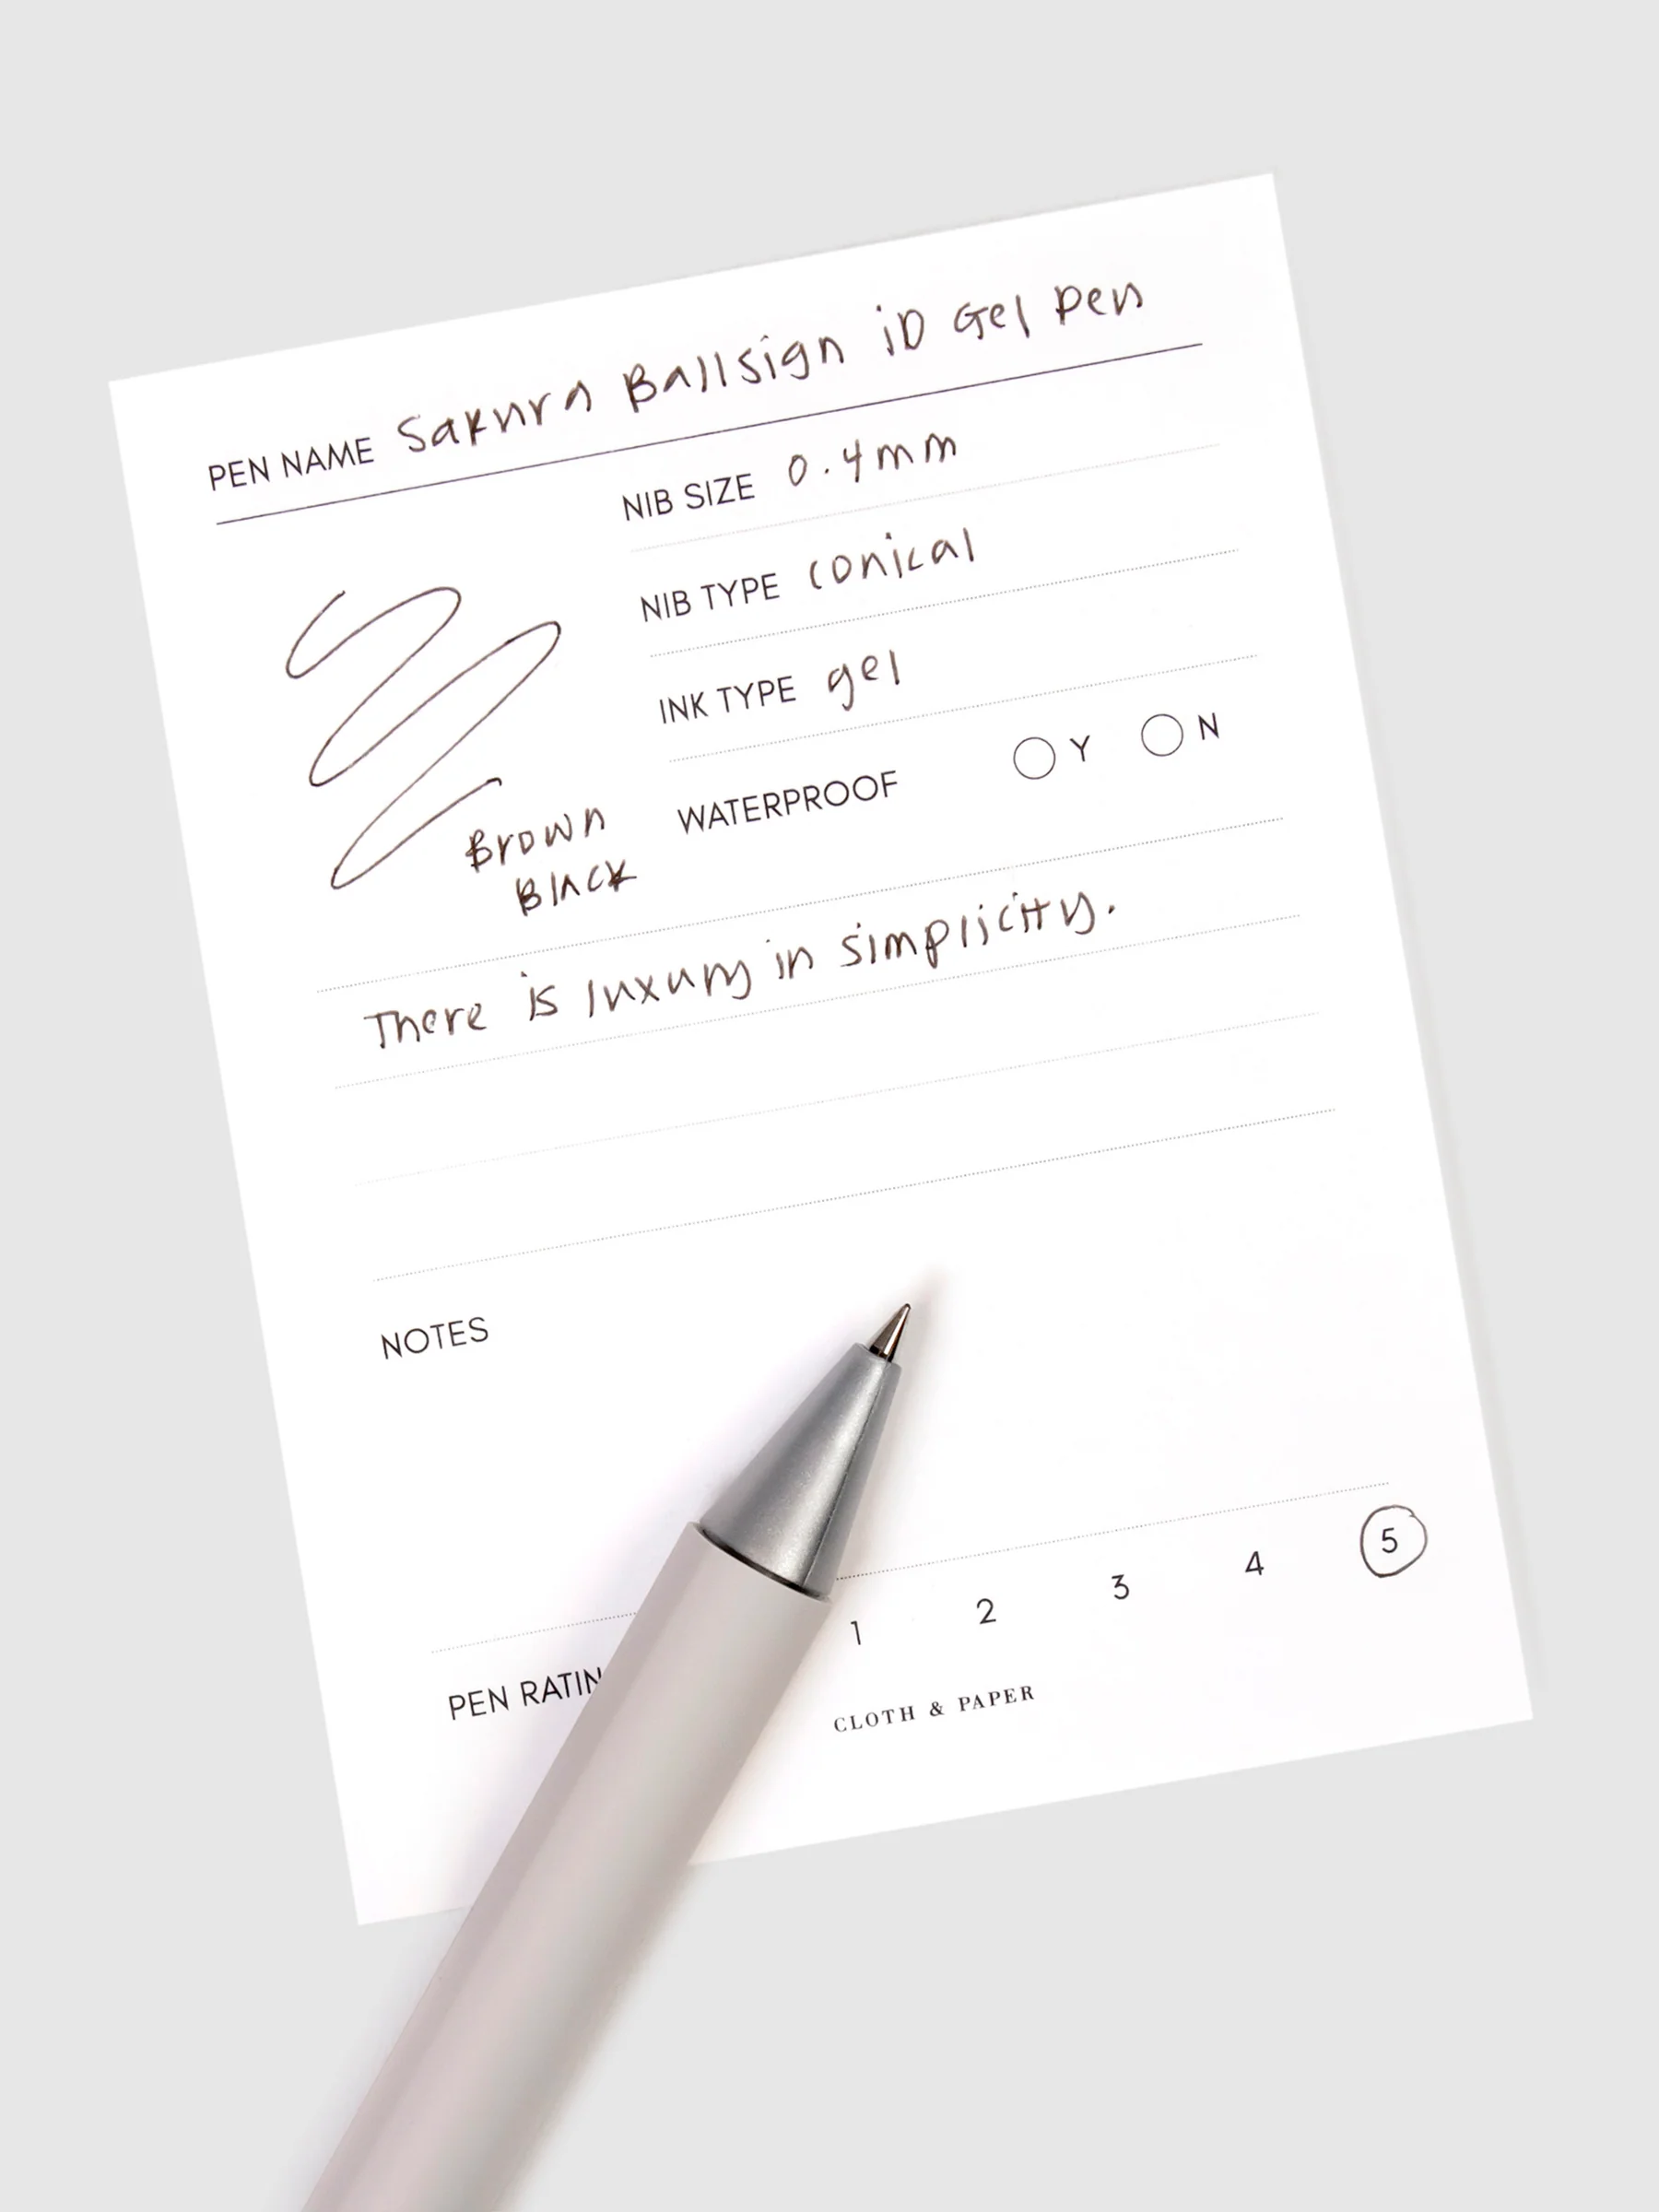 PEN NAME Sakura Ballsign iD Gel Pen
NIB SIZE 0.4mm
NIB TYPE conical
INK TYPE gel
WATERPROOF Y N
Brown
Black
There is luxury in simplicity.
NOTES
PEN RATIN 1 2 3 4 5
CLOTH & PAPER